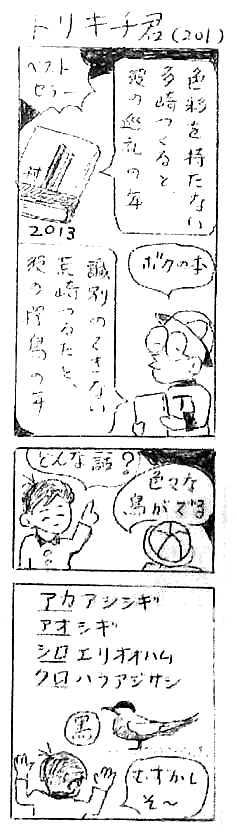 トリキチ君(201)
ベスト
セラー
色彩を持たない
多崎つくると、
彼の巡礼の年
村
2013
ボクの本
識別のできない
荒崎つるたと、
彼の探鳥の年
どんな話?
色々な
鳥がでる
アカアシシギ
アオシギ
シロエリオオハム
クロハラアジサシ
黒
むずかし
そ〜